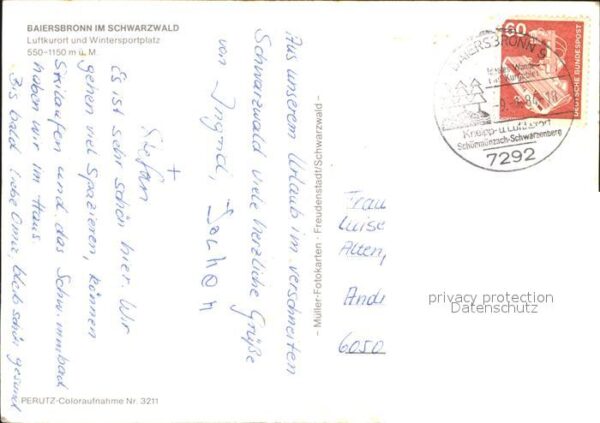 BAIERSBRONN IM SCHWARZWALD
Luftkurort und Wintersportplatz
550-1150 m ü. M.
Aus unserem Urlaub im verschneiten
Schwarzwald viele herzliche Grüße
von Ingrid, Jochen
+
Stefan
Es ist sehr schön hier. Wir
gehen viel spazieren, können
Skilaufen und das Schwimmbad
haben wir im Haus.
Bis bald liebe Oma, bleib schön gesund
PERUTZ-Coloraufnahme Nr. 3211
- Müller-Fotokarten - Freudenstadt/Schwarzwald -
60
DEUTSCHE BUNDESPOST
BAIERSBRONN 9
Kneipp-u.Luftkurort
Schönmünzach-Schwarzenberg
7292
Frau
Luise
Alten
Andr
6050
privacy protection
Datenschutz